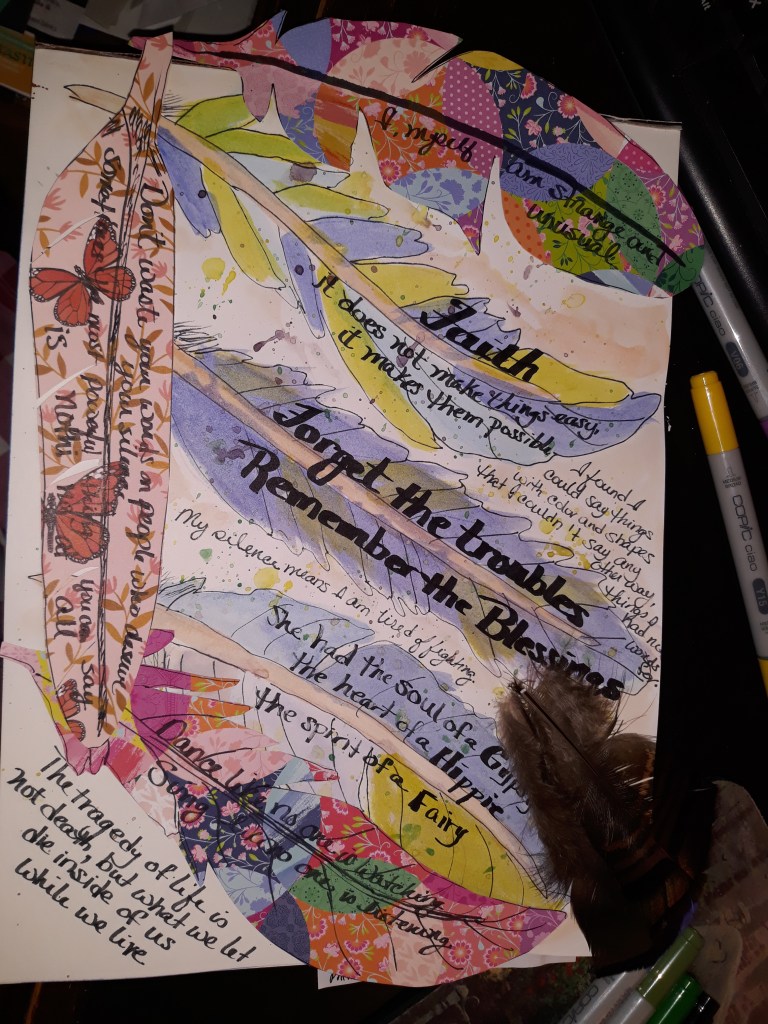 I, myself
am strange and
unusual
Faith
it does not make things easy,
it makes them possible
Forget the troubles
Remember the Blessings
I found I
could say things
with color and shapes
that I couldn't say any
other way,
things I
had no
words
for.
My silence means I am tired of fighting
She had the soul of a Gypsy
the heart of a Hippie
the spirit of a Fairy
Dance like no one is watching
Sing like no one is listening
Don't waste your words on people who deserve
your silence
Sometimes the most powerful thing you can say
is Nothing at all
The tragedy of life is
not death, but what we let
die inside of us
while we live
COPIC ciao
COPIC ciao Y15